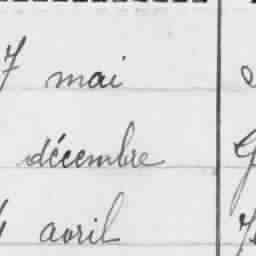 7 mai
décembre
avril